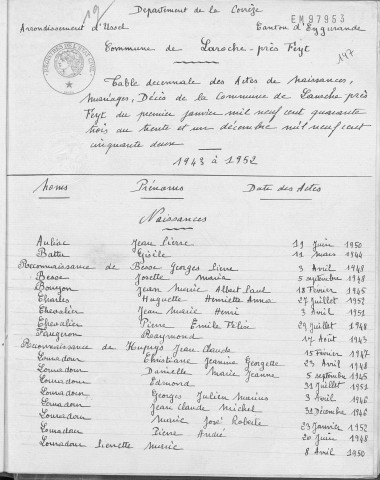 19
Département de la Corrèze
EM97953
Arrondissement d'Ussel
Canton d'Eygurande
147
Commune de Laroche-près-Feyt
Table décennale des Actes de Naissances,
Mariages, Décès de la Commune de Laroche près
Feyt du premier janvier mil neuf cent quarante
trois au trente et un décembre mil neuf cent
cinquante deux
1943 à 1952
Noms Prénoms Date des Actes
Naissances
Auliac Jean Pierre 19 Juin 1950
Battu Gisèle 11 mars 1944
Reconnaissance de Besse Georges Pierre 3 Avril 1948
Besse Josette Maria 5 septembre 1948
Bouzon Jean Marie Albert Paul 18 Février 1945
Charles Huguette Henriette Anna 27 Juillet 1952
Chevalier Jean Marie Henri 3 Avril 1951
Chevalier Pierre Emile Félix 29 Juillet 1948
Faugeron Raymond 17 Août 1943
Reconnaissance de Jean Claude 15 Février 1947
Louradour Christiane Jeanine Georgette 23 Avril 1948
Louradour Danielle Marie Jeanne 5 septembre 1945
Louradour Edmond 31 Juillet 1951
Louradour Georges Julien Marius 3 Avril 1946
Louradour Jean Claude Michel 31 Décembre 1946
Louradour Marie José Roberte 23 Janvier 1952
Louradour Pierre André 20 Juin 1948
Louradour Pierrette Marie 8 Avril 1950